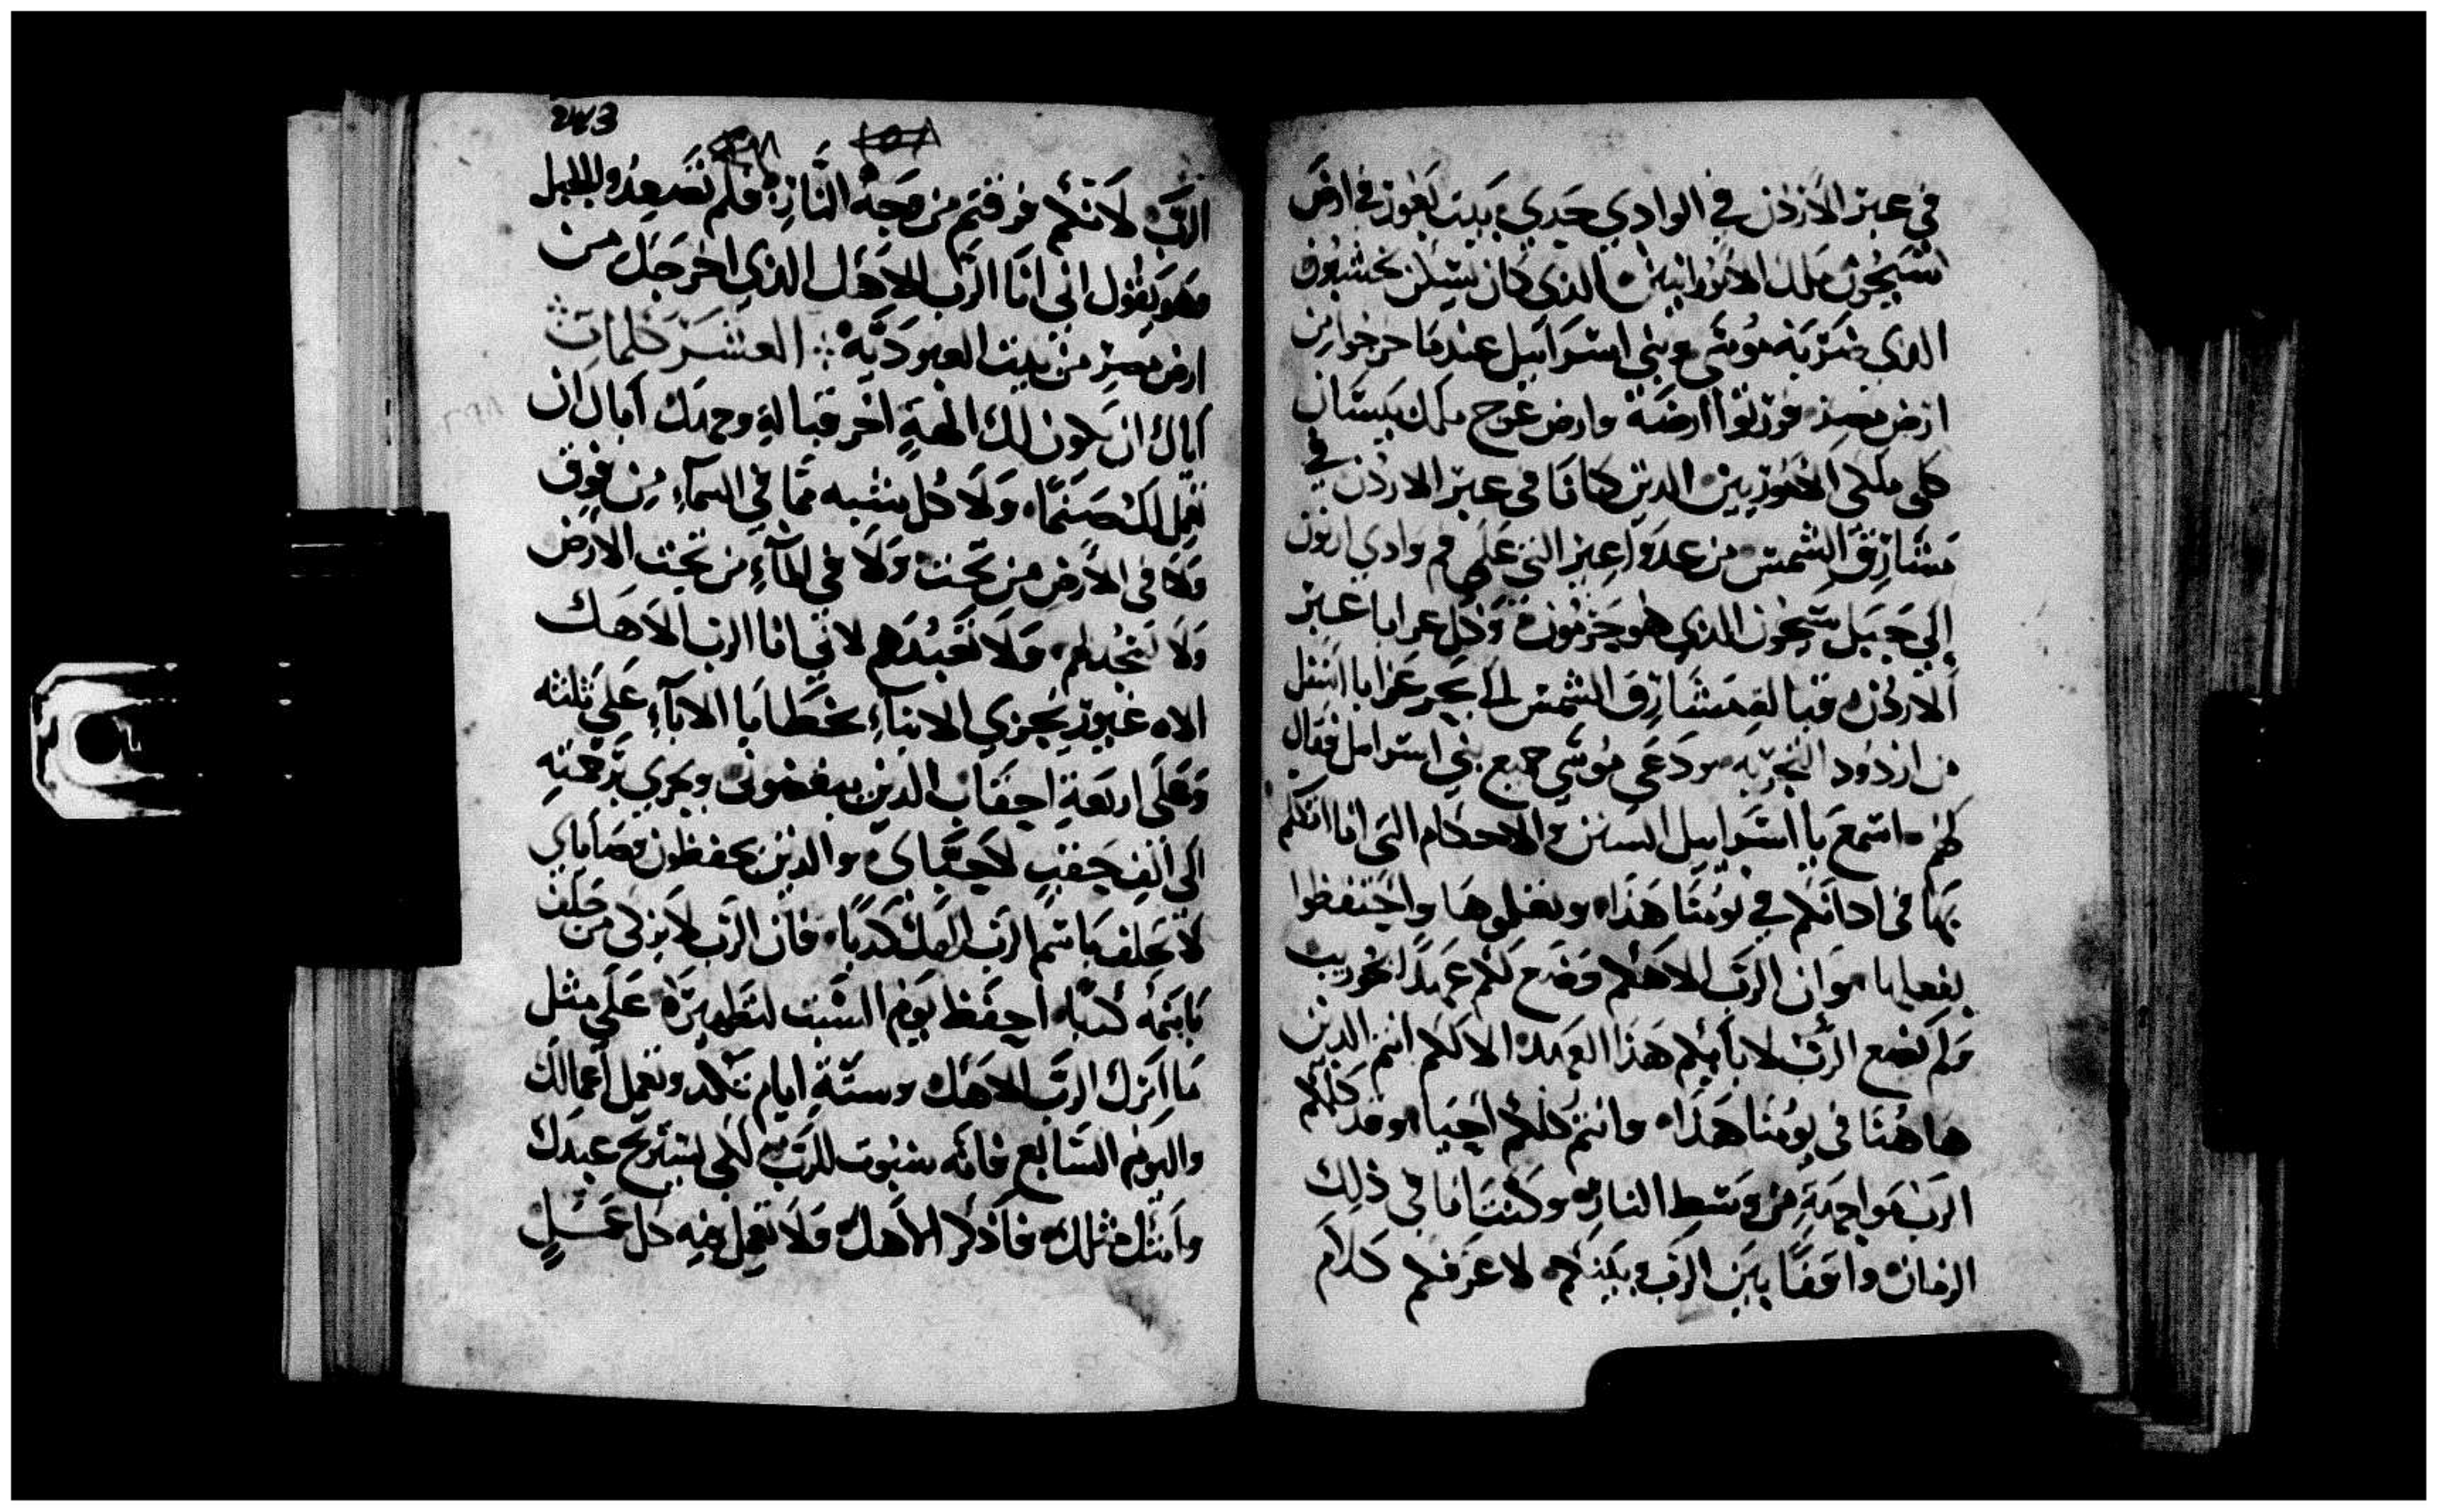 في عبر الاردن في الوادي حدي بيت بغور في ارض
سيحون ملك الامورانيين الذي كان يسكن حشبون
الذي ضربه موسى وبني اسرائيل عندما خرجوا من
ارض مصر فورثوا ارضه وارض عوج ملك بيسان
كلى ملكى الاموريين الدين كانا في عبر الاردن في
مشارق الشمس من عدوا عير التي على فم وادي ارنون
إلي جبل سيحون الذي هو حرمون وكل عرابا عبر
الاردن قبالة مشارق الشمس الى بحر عرابا اسفل
من اردود التجربه ودعى موسى جميع بني اسرايل فقال
لهم اسمع يا اسرايل السنن والاحكام التي انا اتكلم
بها في اذانكم في يومنا هذا وتعلموها واحتفظوا
بفعلها وان الرب الاهكم وضع لكم عهدًا بخوريب
ولم يضع الرب لابايكم هذا العهد الا لكم انتم الدين
هاهنا في يومنا هذا وانتم كلكم احيا وقد كلمكم
الرب مواجهة من وسط النار وكنت انا في ذلك
الزمان واقفًا بين الرب وبينكم لاعرفكم كلام
243
الرب لانكم فرقتم من وجه النار فلم تصعدوا للجبل
وهو يقول اني انا الرب الاهك الذي اخرجك من
ارض مصر من بيت العبودية العشر كلمات
اياك ان يكون لك الهةٍ اخر قبالة وجهك اياك ان
تعمل لك صنمًا ولا كل شبه مما في السماء من فوق
ولا في الارض من تحت ولا في الماء من تحت الارض
ولا تسجد لهم ولا تعبدهم لاني انا الرب الاهك
الاه غيور يجزي الابناء بخطايا الاباء على ثلثه
وعلى اربعة احقاب الدين يبغضوني ويجري برحمته
الى الف حقب لاحباي والذين يحفظون وصاياي
لا تحلف باسم الرب الهك كدبًا فان الرب لا يزكى من حلف
باسمه كدبًا احفظ يوم السبت لتطهره على مثل
ما امرك الرب الاهك وستة ايام تكد وتعمل اعمالك
واليوم السابع فانه سبوت للرب لكي يستريح عبدك
وامتك مثلك فاذكر الاهك ولا تعمل فيه كل عمل